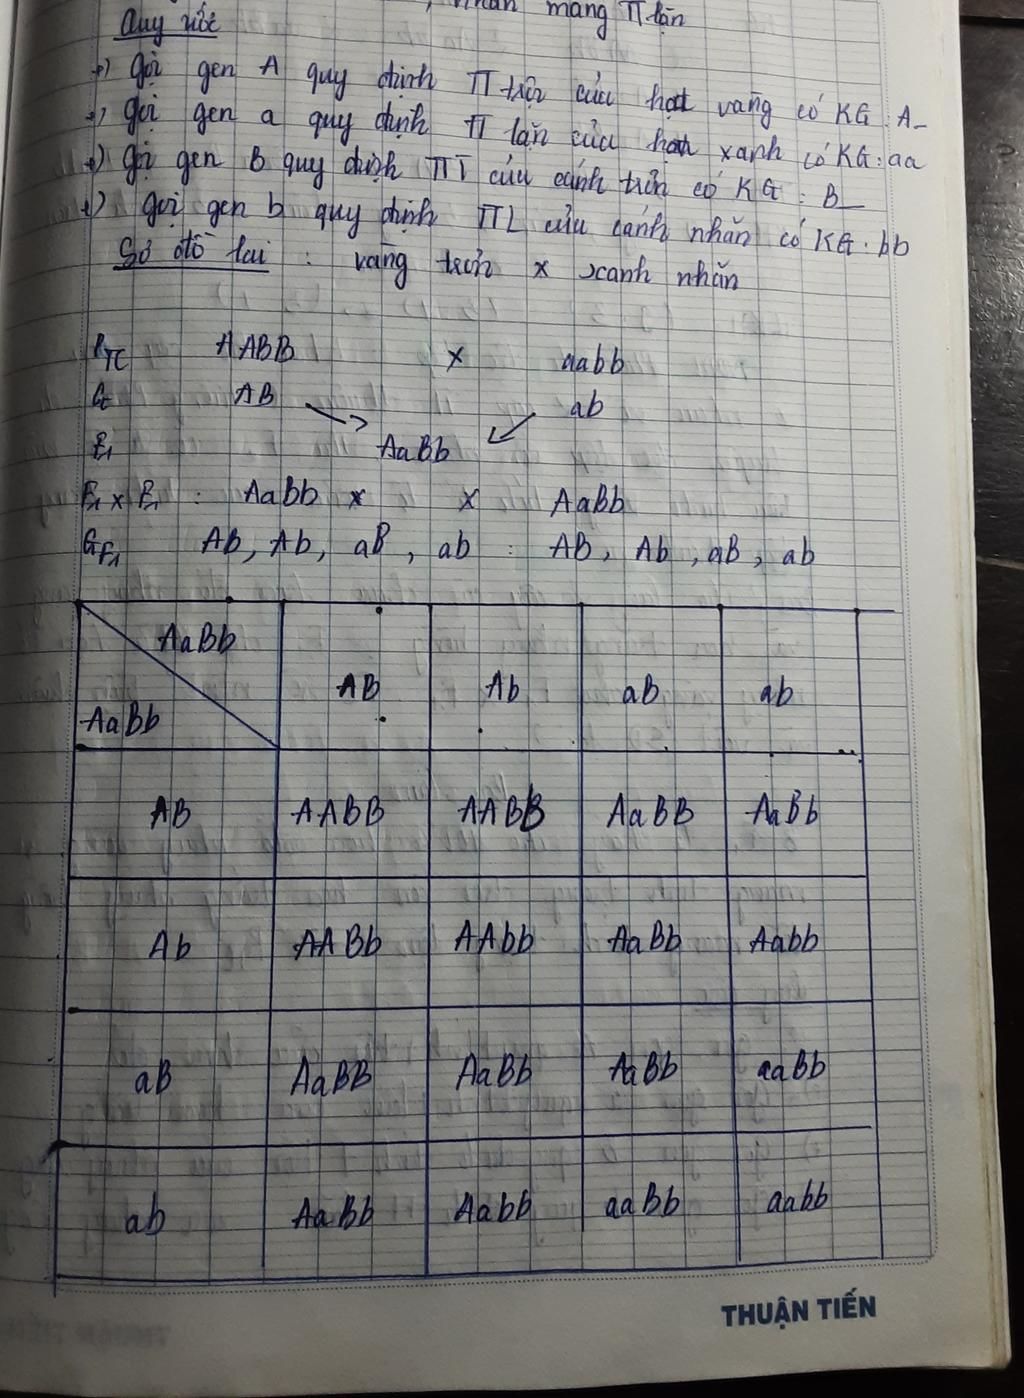 mang TT lặn
Quy ước
+) Gọi gen A quy định TT trội của hạt vàng có KG: A_
+) Gọi gen a quy định TT lặn của hạt xanh có KG: aa
+) Gọi gen B quy định TTT của cánh trơn có KG: B_
+) Gọi gen b quy định TTL của cánh nhăn có KG: bb
Sơ đồ lai : vàng trơn x xanh nhăn
PTC AABB x aabb
G AB ab
F1 AaBb
F1 x F1 : AaBb x x AaBb
GF1 AB, Ab, aB, ab : AB, Ab, aB, ab
AaBb
AaBb AB Ab aB ab
AB AABB AABB AaBB AaBb
Ab AABb AAbb AaBb Aabb
aB AaBB AaBb AaBb aaBb
ab AaBb Aabb aaBb aabb
THUẬN TIẾN